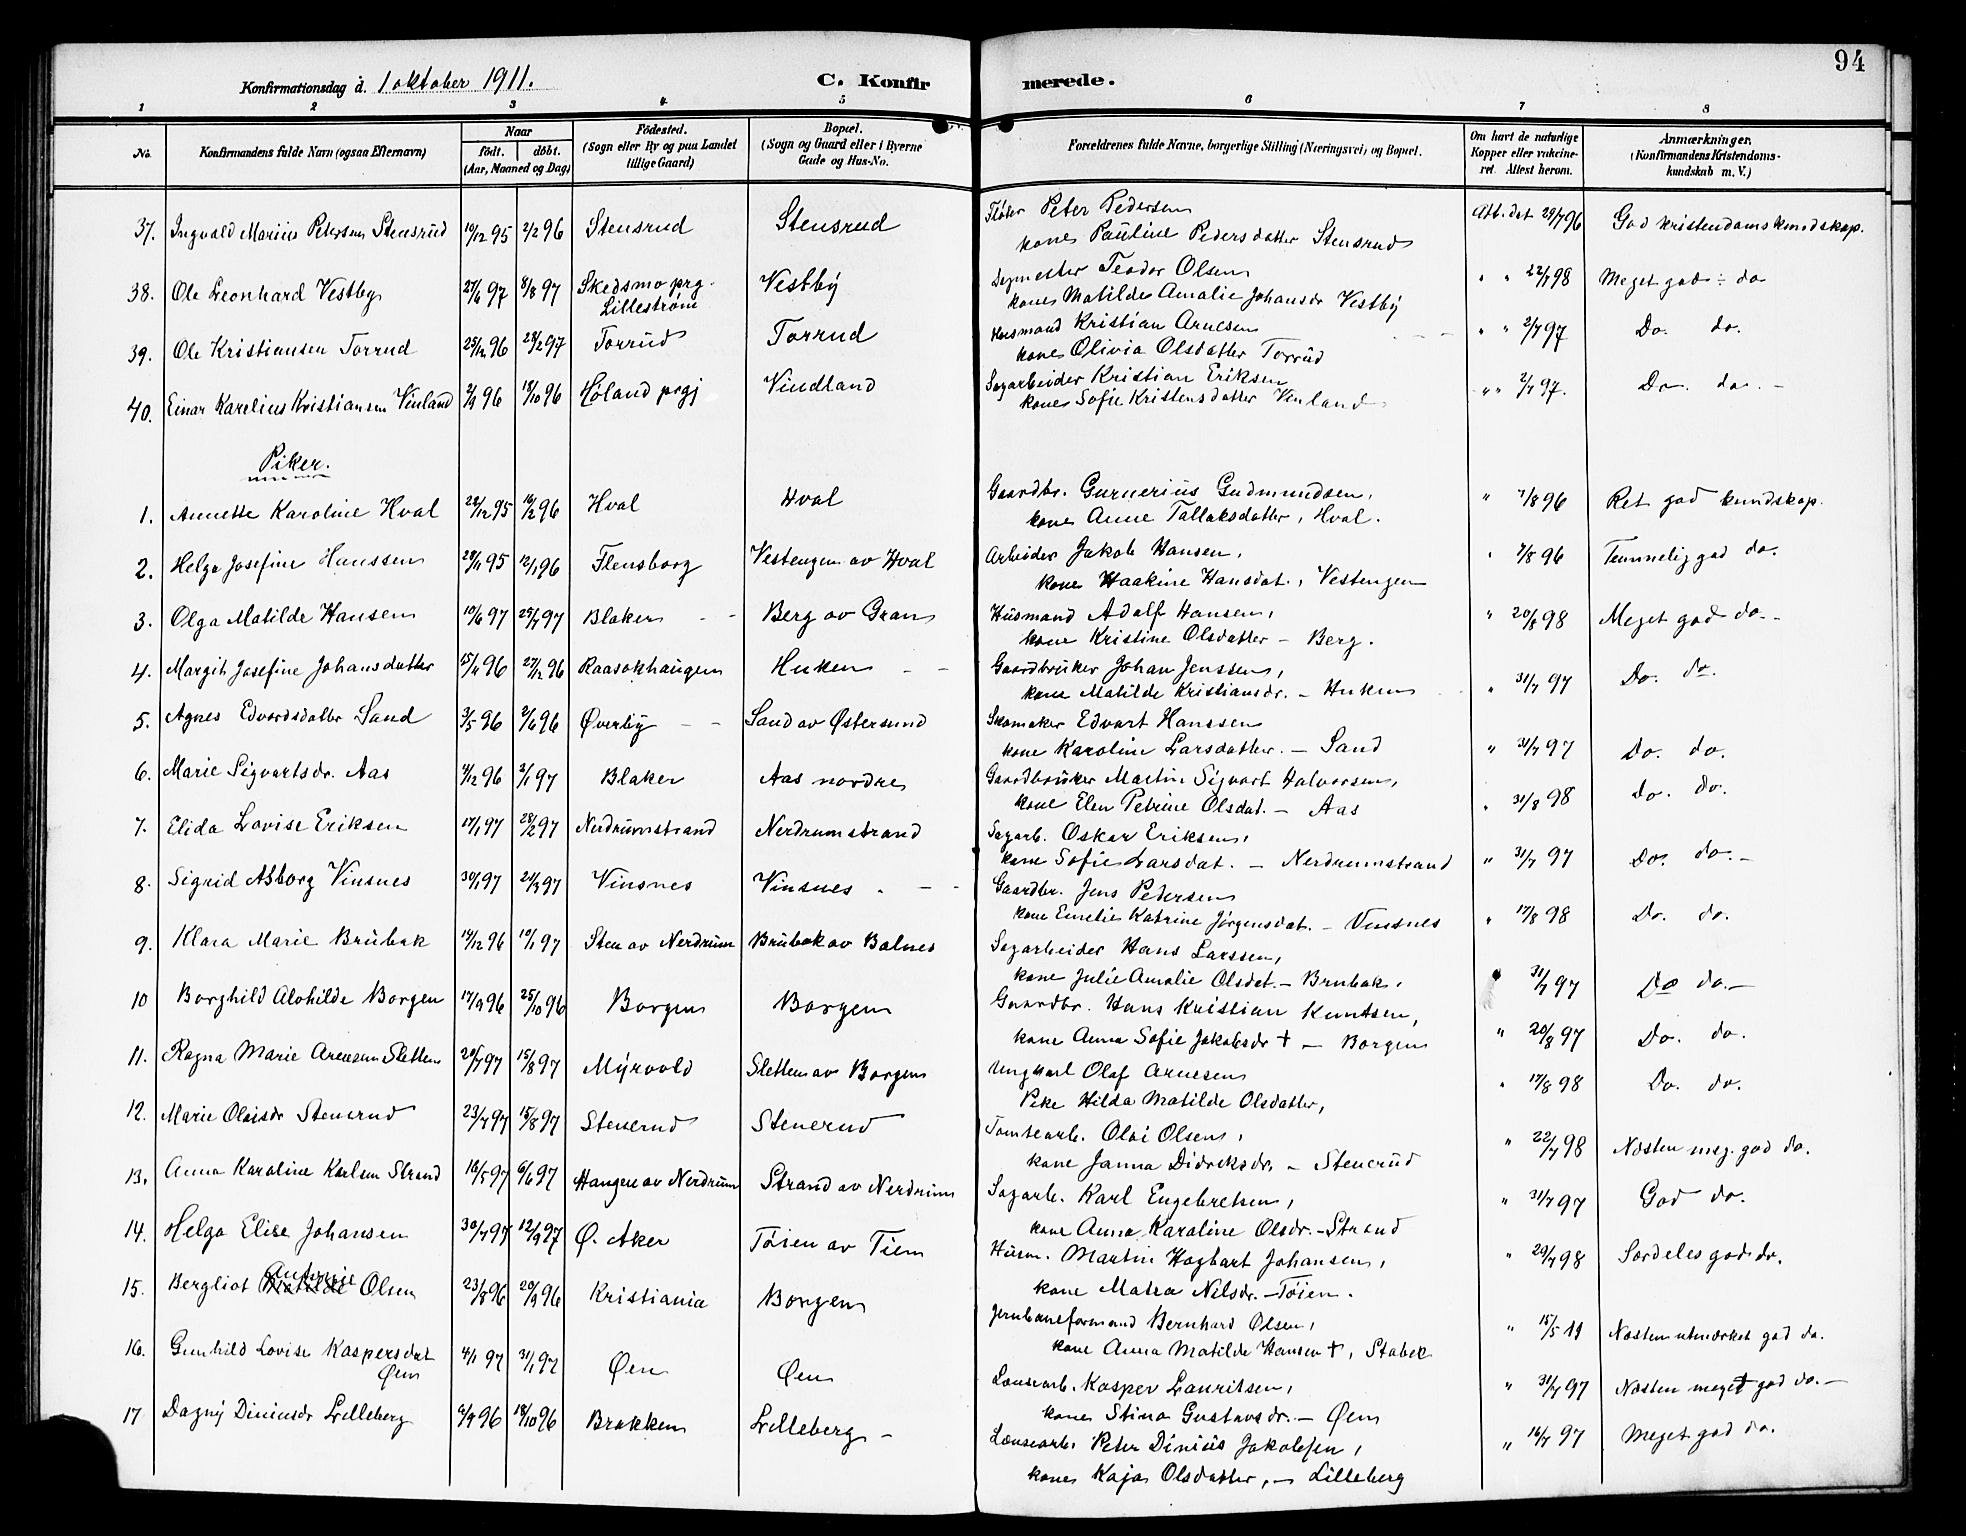 94
Konfirmationsdag d. 1 oktober 1911.
C. Konfirmerede.
1 2 3 4 5 6 7 8
No.
Konfirmandens fulde Navn (ogsaa Efternavn)
Naar
födt. döbt.
(Aar, Maaned og Dag)
Födested.
(Sogn eller By og paa Landet
tillige Gaard)
Bopæl.
(Sogn og Gaard eller i Byerne
Gade og Hus-No.
Forældrenes fulde Navne, borgerlige Stilling (Næringsvei) og Bopæl.
Om havt de naturlige
Kopper eller vakcine-
ret. Attest herom.
Anmærkninger.
(Konfirmandens Kristendoms-
kundskab m. V.)
37. Ingvald Marius Petersen Stensrud 10/12 95 2/2 96 Stensrud Stensrud Fløter Peter Pedersen Att. dat 29/7 96 God kristendomskundskap.
kone Pauline Pedersdatter Stensrud
38. Ole Leonhard Vestby 27/6 97 8/8 97 Skedsmo prg. Vestby Teodor Olsen " " 22/7 98 Meget god do
Lillestrøm kone Matilde Amalie Johansdr Vestby
39. Ole Kristiansen Torrud 25/12 96 28/2 97 Torrud Torrud Husmand Kristian Arnesen " " 2/7 97 Do. do.
kone Olivia Olsdatter Torrud
40. Einar Karelius Kristiansen Vinland 2/9 96 18/10 96 Høland prgj Vindland Sagarbeider Kristian Eriksen " " 2/7 97. Do. do. -
kone Sofie Kristensdatter Vinland
Piker.
1. Annette Karoline Hval 28/12 95 16/2 96 Hval Hval Gaardbr. Gunerius Gudmundsen, " 7/8 96 Ret god kundskap.
kone Anne Tallaksdatter, Hval.
2. Helga Josefine Hanssen 28/11 95 12/1 96 Flensborg Vestengen av Hval Arbeider Jakob Hansen, " 7/8 96 Temmelig god do.
kone Haakine Hansdat., Vestengen
3. Olga Matilde Hansen 10/6 97 25/7 97 Blaker Berg av Gran Husmand Adolf Hansen, " 20/8 98 Meget god do.
kone Kristine Olsdatter - Berg.
4. Margit Josefine Johansdatter 15/11 96 27/12 96 Raasokhaugen Huken Gaardbruker Johan Jenssen, " 31/7 97 Do. do.
kone Matilde Kristiansdr. - Huken
5. Agnes Edvardsdatter Sand 3/5 96 2/6 96 Øverby Sand av Østersund Skomaker Edvart Hanssen " 31/7 97 Do. do.
kone Karoline Larsdatter. - Sand
6. Marie Sigvartsdr. Aas 4/12 96 2/1 97 Blaker Aas nordre Gaardbruker Martin Sigvart Halvorsen, " 31/8 98 Do. do.
kone Elen Petrine Olsdat. - Aas
7. Elida Lovise Eriksen 17/1 97 28/2 97 Nerdrumstrand Nerdrumstrand Sagarb. Oskar Eriksen, " 31/7 97 Do. do. -
kone Sofie Larsdat. - Nerdrumstrand
8. Sigrid Asborg Vinsnes 30/1 97 21/3 97 Vinsnes Vinsnes Gaardbr. Jens Pedersen " 17/8 98 Do. do.
kone Emelie Katrine Jörgensdat. - Vinsnes
9. Klara Marie Brubak 14/12 96 10/1 97 Sten av Nerdrum Brubak av Balnes Sagarbeider Hans Larssen, " 31/7 97 Do do. -
kone Julie Amalie Olsdat. - Brubak.
10 Borghild Alvhilde Borgen 17/9 96 25/10 96 Borgen Borgen Gaardbr. Hans Kristian Knutsen, " 20/8 97 Do. do.
kone Anna Sofie Jakobsdr † - Borgen
11. Ragna Marie Arnesen Sletten 20/7 97 15/8 97 Myrvold Sletten av Borgen Ungkarl Olaf Arnesen " 17/8 98 Do. do.
Pike Hilda Matilde Olsdatter,
12. Marie Olaisdr Stenerud 23/7 97 15/8 97 Stenerud Stenerud Tomtearb. Olai Olsen, " 22/7 98 Næsten meg. god do.
kone Janna Didriksdr. - Stenerud
13. Anna Karoline Karlsen Strand 16/5 97 6/6 97 Haugen av Nerdrum Strand av Nerdrum Sagarb. Karl Engebretsen, " 31/7 97 God do.
kone Anna Karoline Olsdr. - Strand
14. Helga Elise Johansen 30/7 97 12/9 97 Ø. Aker Töien av Tiem Husm. Martin Hagbart Johansen, " 29/7 98 Særdeles god do.
kone Matea Nilsdr. - Töien.
15. Bergliot Antonie Olsen 23/8 96 20/9 96 Kristiania Borgen Jernbaneformand Bernhard Olsen, " 15/5 11 Næsten utmærket god do.
kone Anna Matilde Hansen †, Stabek
16. Gunhild Lovise Kaspersdat 4/1 97 31/1 97 Øen Øen Lænsearb. Kasper Lauritsen, " 31/7 97 Næsten meget god do. -
Øen kone Stina Gustavsdr. - Øen
17 Dagny Diniusdr Lilleberg 6/9 96 18/10 96 Brakken Lilleberg - Lænsearb. Peter Dinius Jakobsen, " 16/7 97 Meget god do.
kone Kaja Olsdatter, - Lilleberg